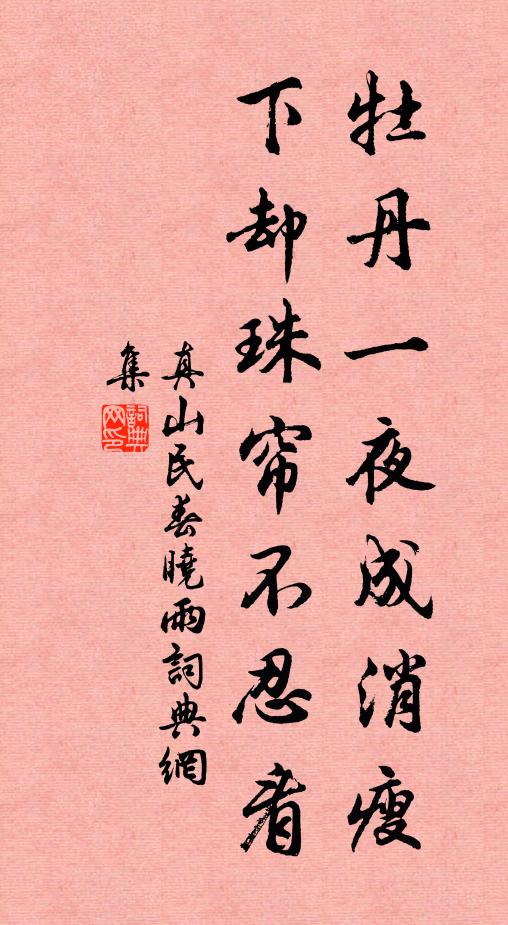 牡丹一夜成消瘦
下却珠帘不忍看
真山民春曉雨詞典網
集
詞典网印